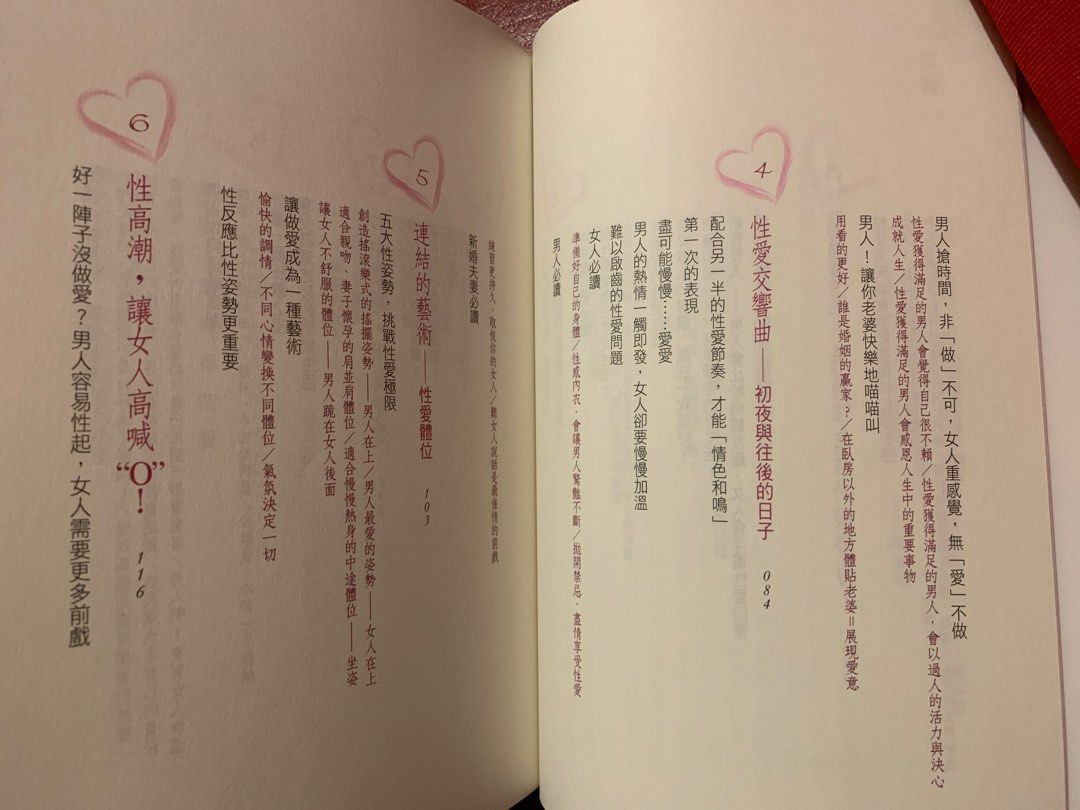 男人搶時間，非「做」不可，女人重感覺，無「愛」不做
性愛獲得滿足的男人會覺得自己很不賴／性愛獲得滿足的男人，會以過人的活力與決心
成就人生／性愛獲得滿足的男人會感恩人生中的重要事物
男人！讓你老婆快樂地喵喵叫
用看的更好／誰是婚姻的贏家？／在臥房以外的地方體貼老婆＝展現愛意
4
性愛交響曲——初夜與往後的日子 084
配合另一半的性愛節奏，才能「情色和鳴」
第一次的表現
盡可能慢慢……愛愛
男人的熱情一觸即發，女人卻要慢慢加溫
難以啟齒的性愛問題
女人必讀
準備好自己的身體／性感內衣，會讓男人驚艷不斷／拋開禁忌，盡情享受性愛
男人必讀
練習更持久，取悅你的女人／聽女人說話是最催情的前戲
新婚夫妻必讀
5
連結的藝術——性愛體位 103
五大性姿勢，挑戰性愛極限
創造搖滾樂式的搖擺姿勢——男人在上／男人最愛的姿勢——女人在上
適合親吻、妻子懷孕的肩並肩體位／適合慢慢熱身的中途體位——坐姿
讓女人不舒服的體位——男人跪在女人後面
讓做愛成為一種藝術
愉快的調情／不同心情變換不同體位／氣氛決定一切
性反應比性姿勢更重要
6
性高潮，讓女人高喊“O”！ 116
好一陣子沒做愛？男人容易性起，女人需要更多前戲